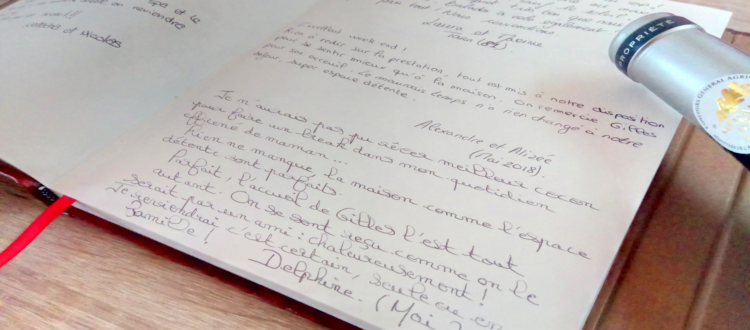 et Nicolas
Laura et Thomas
Excellent week end !
Rien à redire sur la prestation, tout est mis à notre disposition
pour se sentir mieux qu'à la maison. On remercie Gilles
pour son accueil. Le mauvais temps n'a rien changé à notre
séjour, super espace détente.
Alexandre et Alizée
(Mai 2018).
Je n'aurais pas pu rêver meilleur cocon
pour faire un break dans mon quotidien
effréné de maman...
Rien ne manque, la maison comme l'espace
détente sont parfaits.
Parfait, l'accueil de Gilles l'est tout
autant. On se sent reçu comme on le
serait par un ami : chaleureusement !
Je reviendrai c'est certain, seule ou en
famille !
Delphine. (Mai
PROPRIÉTÉ
GÉNÉRAL AGRICOLE